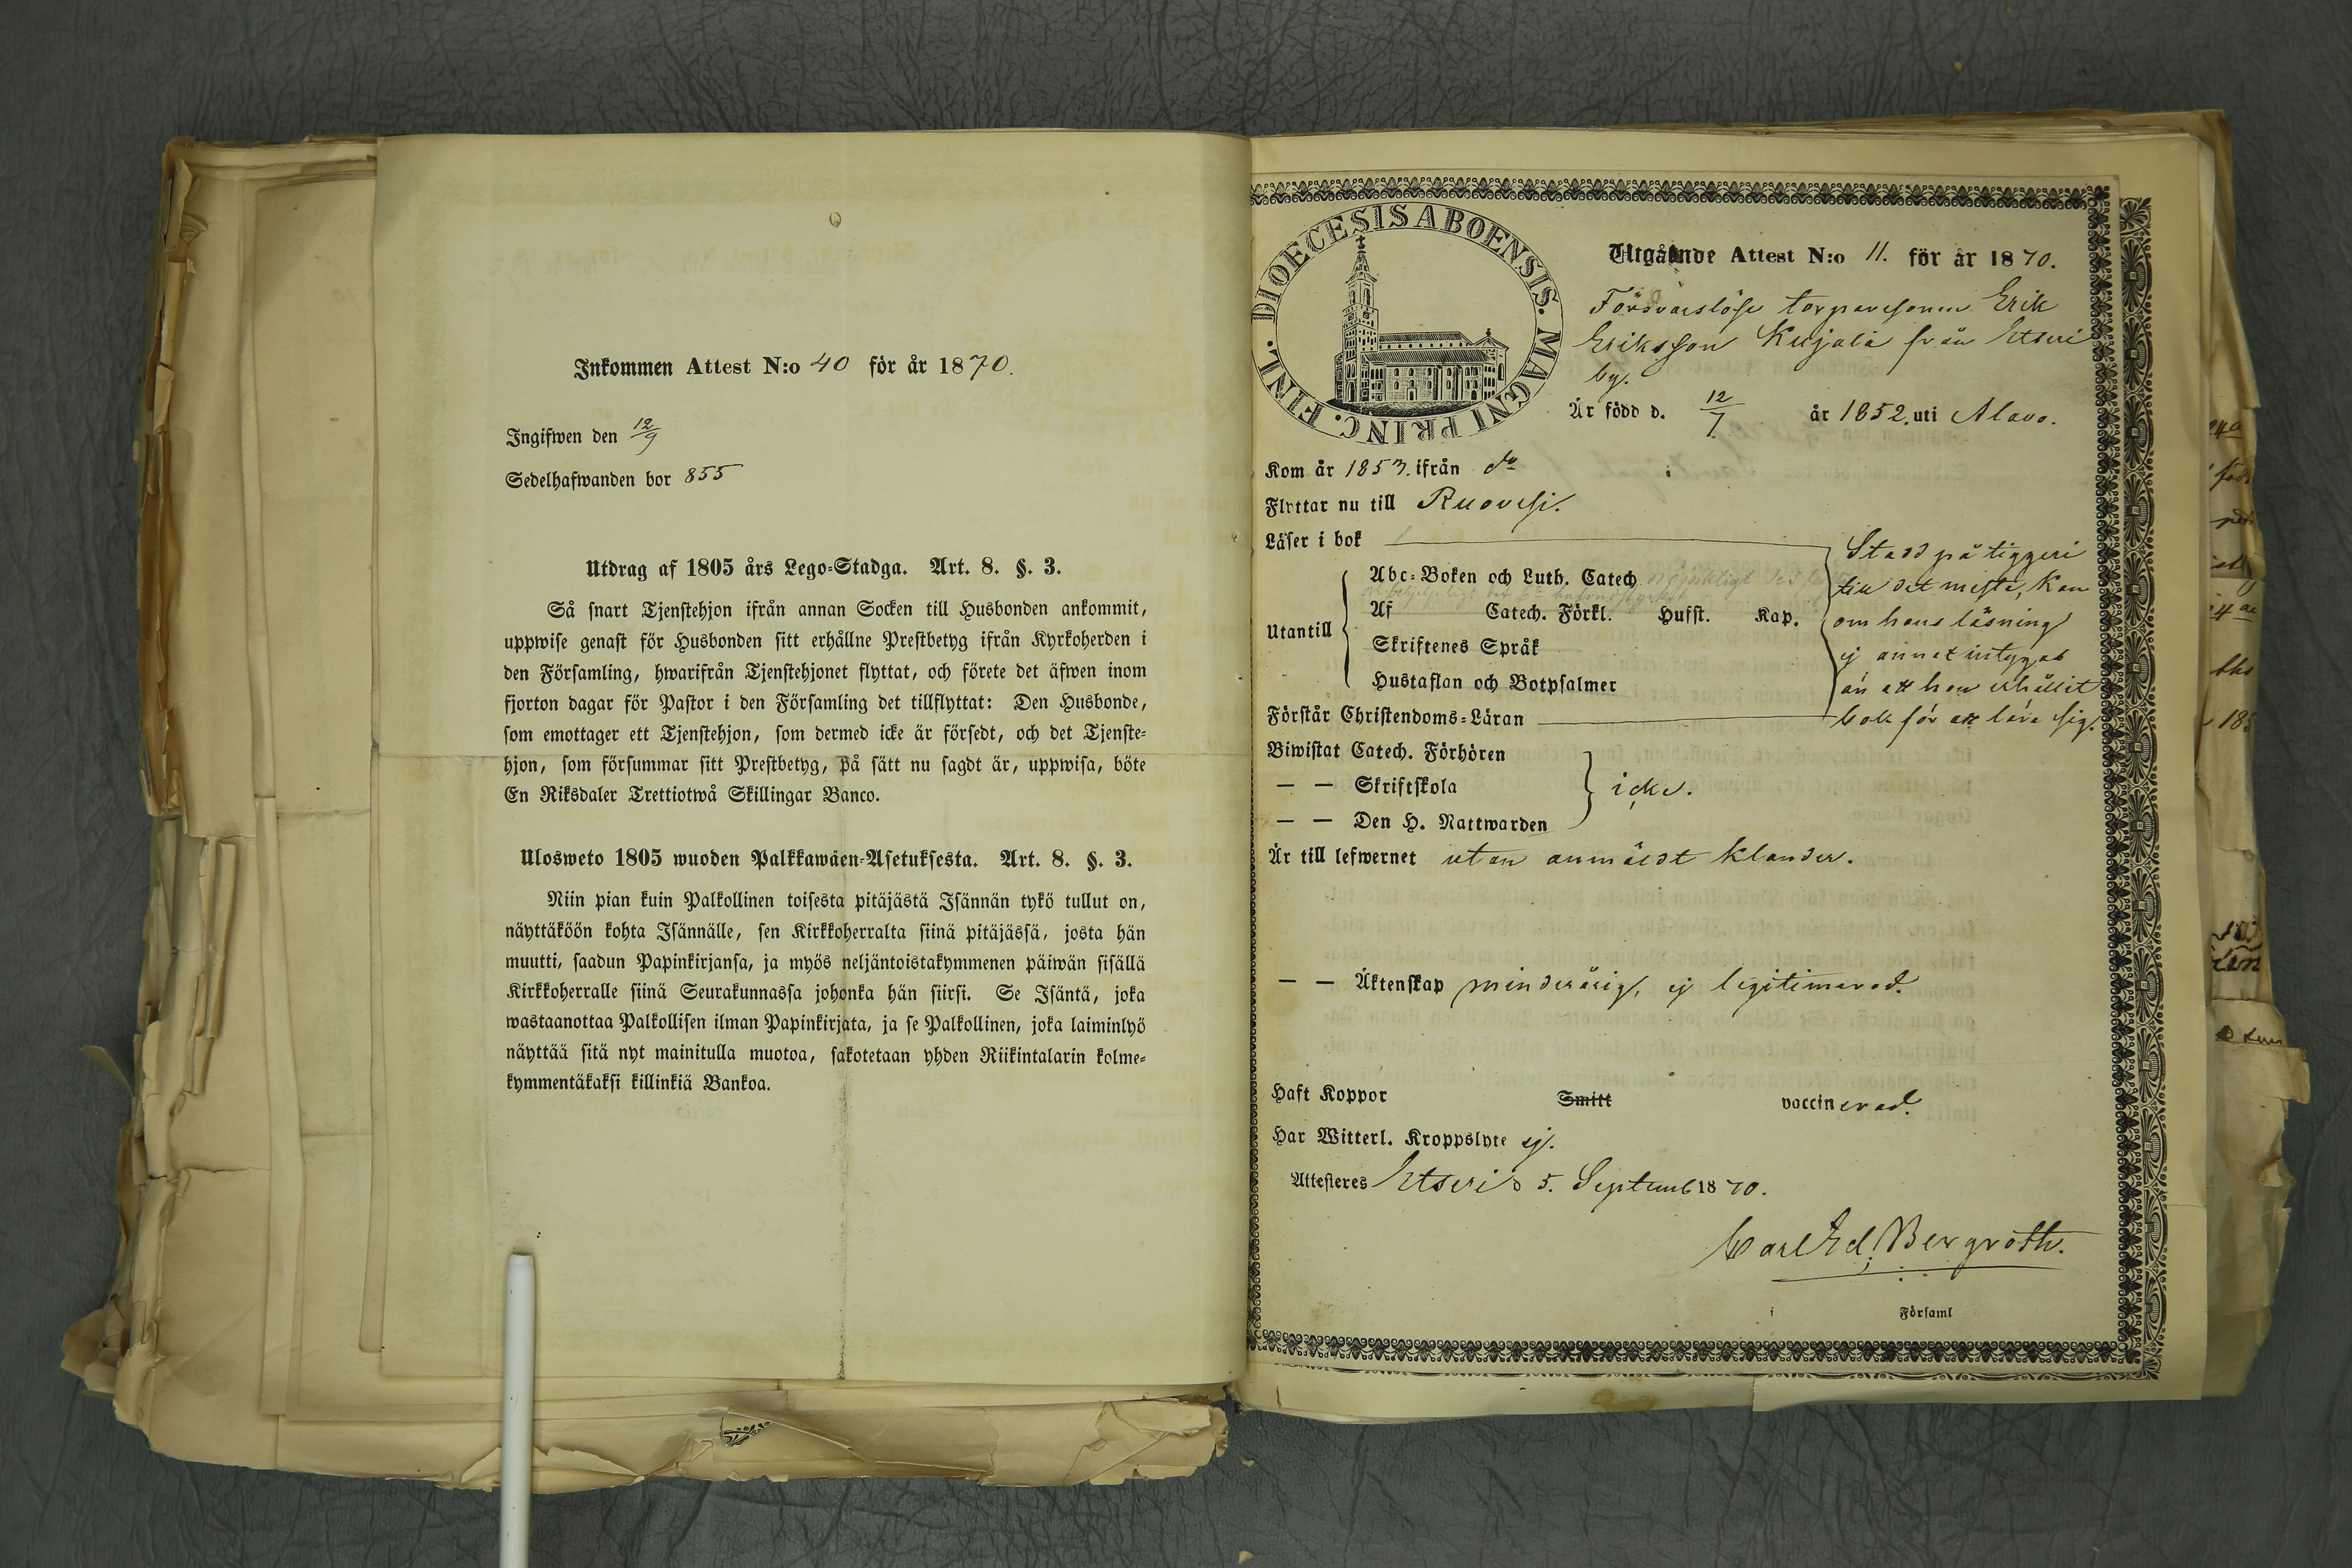 Inkommen Attest N:o 40 för år 1870.
Ingifwen den 12/9
Sedelhafwanden bor 855
Utdrag af 1805 års Lego-Stadga. Art. 8. §. 3.
Så snart Tjenstehjon ifrån annan Socken till Husbonden ankommit,
uppwise genast för Husbonden sitt erhållne Prestbetyg ifrån Kyrkoherden i
den Församling, hwarifrån Tjenstehjonet flyttat, och förete det äfwen inom
fjorton dagar för Pastor i den Församling det tillflyttat: Den Husbonde,
som emottager ett Tjenstehjon, som dermed icke är försedt, och det Tjenste-
hjon, som försummar sitt Prestbetyg, på sätt nu sagdt är, uppwisa, böte
En Riksdaler Trettiotwå Skillingar Banco.
Ulosweto 1805 wuoden Palkkawäen-Asetuksesta. Art. 8. §. 3.
Niin pian kuin Palkollinen toisesta pitäjästä Isännän tykö tullut on,
näyttäköön kohta Isännälle, sen Kirkkoherralta siinä pitäjässä, josta hän
muutti, saadun Papinkirjansa, ja myös neljäntoistakymmenen päiwän sisällä
Kirkkoherralle siinä Seurakunnassa johonka hän siirsi. Se Isäntä, joka
wastaanottaa Palkollisen ilman Papinkirjata, ja se Palkollinen, joka laiminlyö
näyttää sitä nyt mainitulla muotoa, sakotetaan yhden Riikintalarin kolme-
kymmentäkaksi killinkiä Bankoa.
DIOECESIS ABOENSIS. MAGNI PRINC. FINL.
Utgående Attest N:o 11. för år 1870.
Försvarslöse torparesonen Erik
Eriksson Kujala från Etseri
by.
Är född d. 12/7. år 1852. uti Alavo.
Kom år 1853. ifrån do
Flyttar nu till Ruovesi.
Läser i bok
Abc-Boken och Luth. Catech
Utantill Af Catech. Förkl. Husst. Kap.
Skriftenes Språk
Hustaflan och Botpsalmer
Förstår Christendoms-Läran
Stadd på tiggeri
till det mesta, kan
om hans läsning
ej annat intygas
än att han erhållit
bok för att lära sig.
Biwistat Catech. Förhören
— — Skriftskola icke.
— — Den H. Nattwarden
Är till lefwernet utan anmäldt klander.
— — Äktenskap minderårig, ej legitimerad.
Haft Koppor Smitt vaccinerad.
Har Witterl. Kroppslyte ej.
Attesteres Etseri d 5. Septemb 1870.
Carl Ed. Bergroth.
i Församl